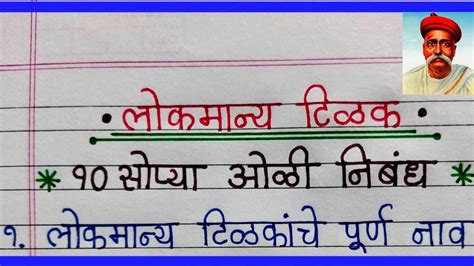 • लोकमान्य टिळक •
* १० सोप्या ओळी निबंध *
१. लोकमान्य टिळकांचे पूर्ण नाव